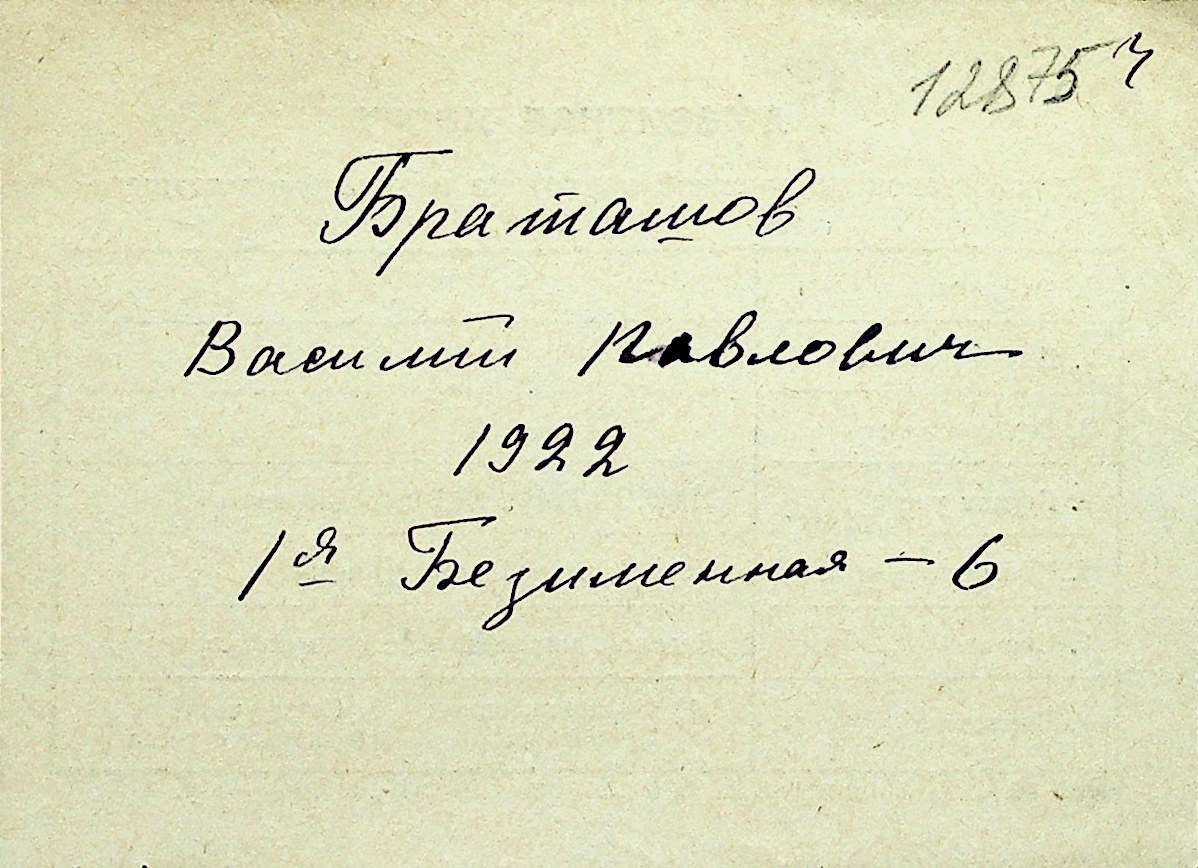 12875 ч
Браташов
Василий Павлович
1922
1я Безименная - 6